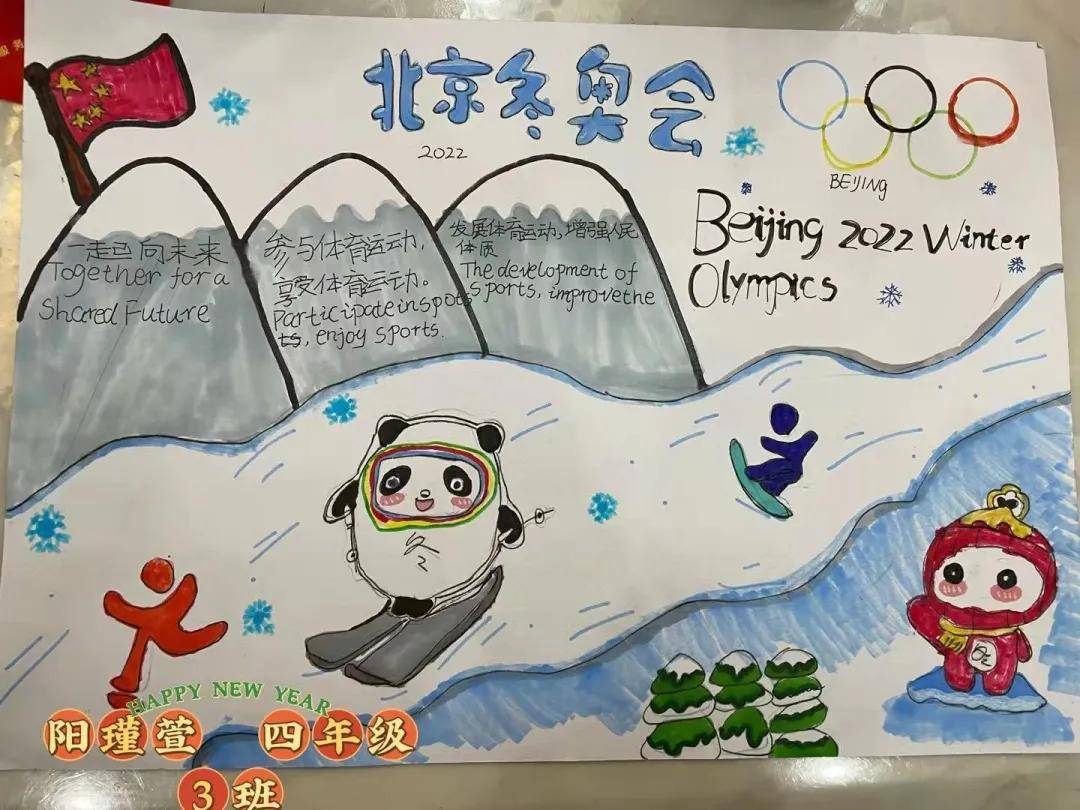 北京冬奥会
2022
BEIJING
Beijing 2022 Winter
Olympics
一起向未来
Together for a
Shared Future
参与体育运动,
享受体育运动。
Participate in spots
ts, enjoy sports.
发展体育运动,增强人民
体质
The development of
sports, improve the
冬
HAPPY NEW YEAR
阳瑾萱 四年级
3班